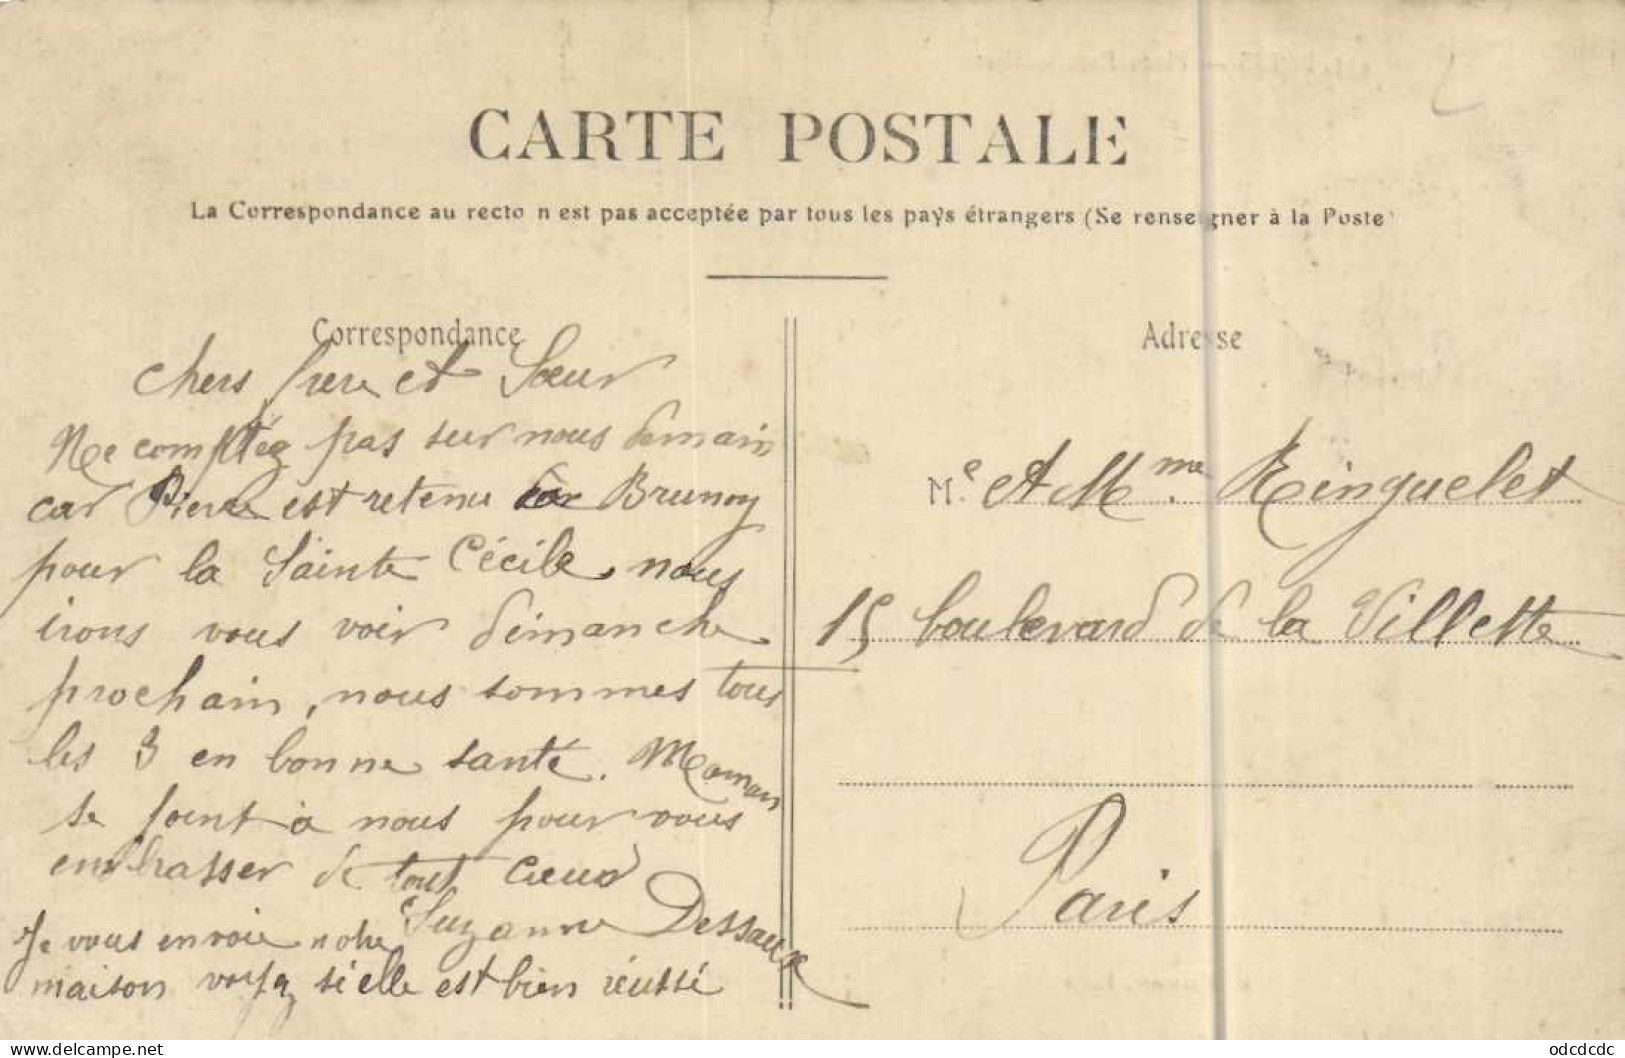 CARTE POSTALE
La Correspondance au recto n est pas acceptée par tous les pays étrangers (Se renseigner à la Poste)
Correspondance
Chers frère et Sœur
Ne comptéz pas sur nous demain
car Pierre est retenu Brunoy
pour la Sainte Cécile, nous
irons vous voir dimanche
prochain, nous sommes tous
les 3 en bonne santé. Maman
se joint à nous pour vous
embrasser de tout cœur
Suzanne Dessauge
Je vous envoie notre
maison voyez si elle est bien réussi
Adresse
M.e et Mme. Ringuelet
15 boulevard de la Villette
Paris
odcdcdc